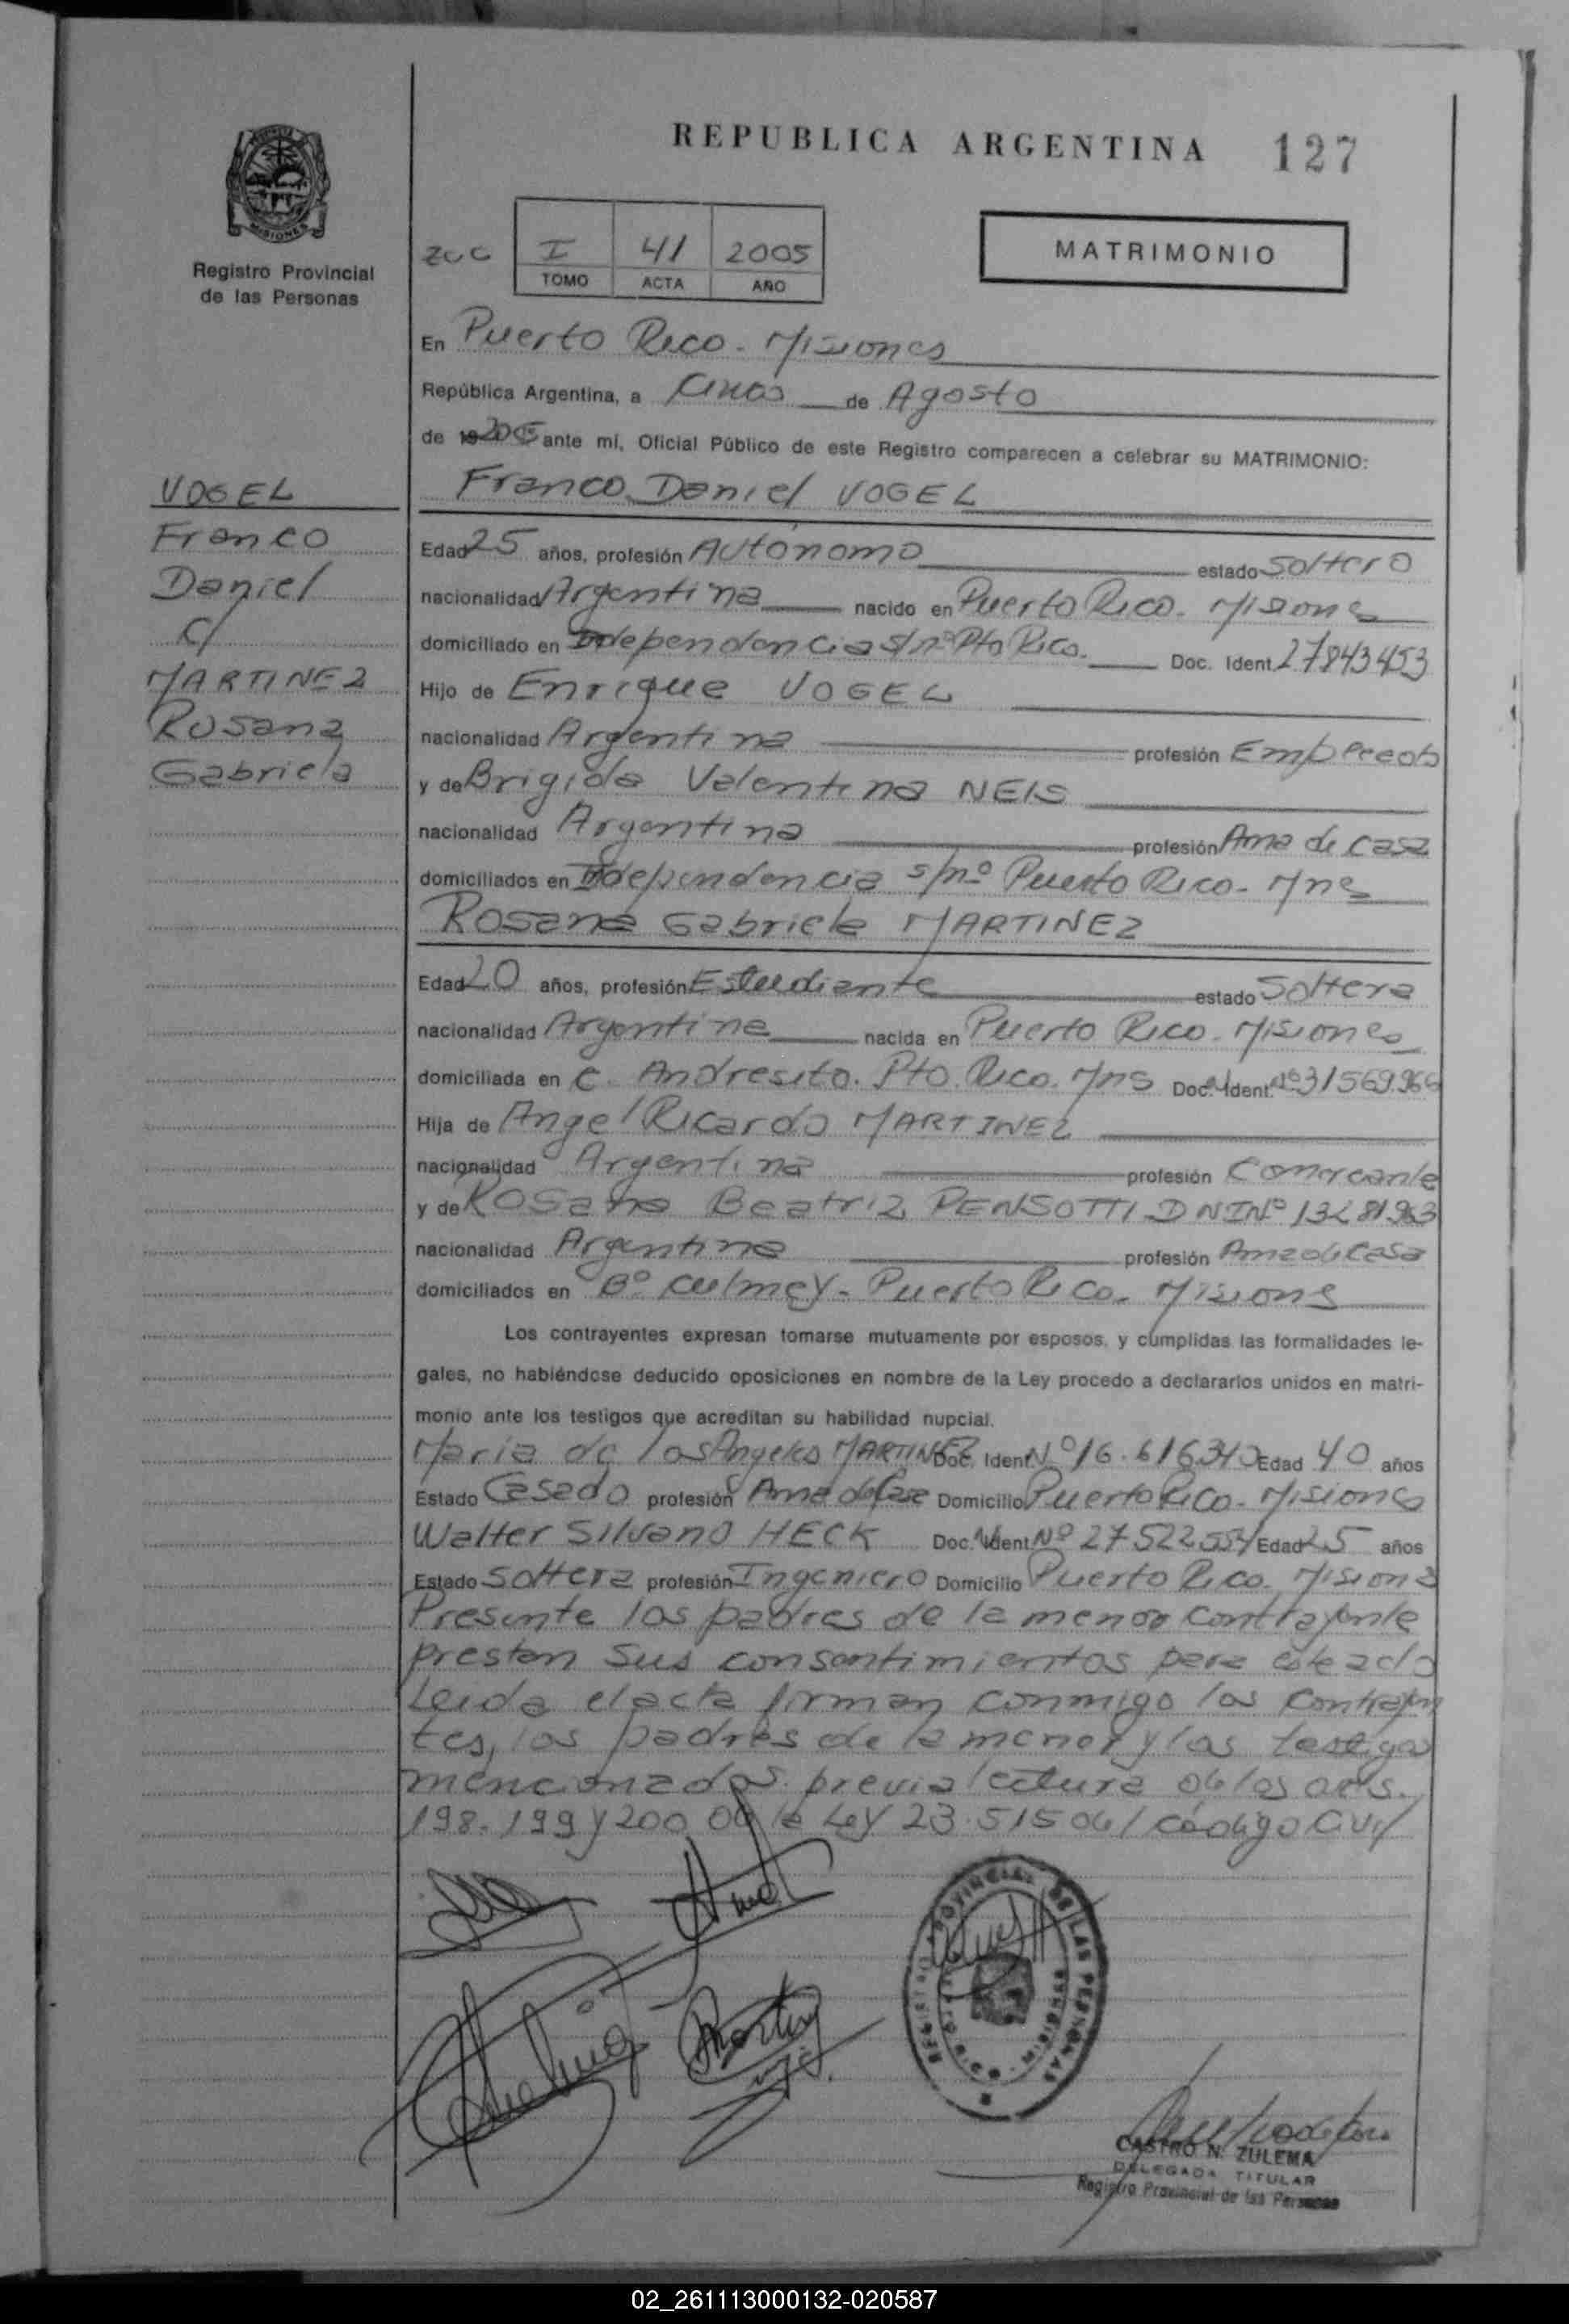 REPUBLICA ARGENTINA 127
MISIONES
Registro Provincial
de las Personas
I 41 2005
TOMO ACTA AÑO
MATRIMONIO
En Puerto Rico - Misiones
República Argentina, a Cinco de Agosto
de ante mí, Oficial Público de este Registro comparecen a celebrar su MATRIMONIO:
Franco Daniel VOGEL
VOGEL
Franco
Daniel
C/
MARTINEZ
Rosana
Gabriela
Edad 25 años, profesión Autónomo estado soltero
nacionalidad Argentina nacido en Puerto Rico - Misiones
domiciliado en Independencia s/nº Pto Rico. Doc. Ident. 27843453
Hijo de Enrique VOGEL
nacionalidad Argentina profesión Empleado
y de Brigida Valentina NEIS
nacionalidad Argentina profesión Ama de casa
domiciliados en Independencia s/nº Puerto Rico - Mnes
Rosana Gabriela MARTINEZ
Edad 20 años, profesión Estudiante estado Soltera
nacionalidad Argentina nacida en Puerto Rico - Misiones
domiciliada en C. Andresito. Pto. Rico. Mns Doc. Ident. Nº 31569966
Hija de Angel Ricardo MARTINEZ
nacionalidad Argentina profesión Comerciante
y de Rosana Beatriz PENSOTTI DNI Nº
nacionalidad Argentina profesión Ama de Casa
domiciliados en Bº Culmey - Puerto Rico - Misiones
Los contrayentes expresan tomarse mutuamente por esposos, y cumplidas las formalidades le-
gales, no habiéndose deducido oposiciones en nombre de la Ley procedo a declararlos unidos en matri-
monio ante los testigos que acreditan su habilidad nupcial.
Maria de los Angeles MARTINEZ Doc. Ident. Nº 16.616340 Edad 40 años
Estado Casado profesión Ama de Casa Domicilio Puerto Rico - Misiones
Walter Silvano HECK Doc. Ident. Nº Edad 25 años
Estado Soltera profesión Ingeniero Domicilio Puerto Rico - Misiones
Presente los padres de la menor contrayente
prestan sus consentimientos para este acto
Leida el acta firman conmigo los contrayen
tes, los padres de la menor y los testigos
mencionados previa lectura de los arts.
198. 199 y 200 de la Ley 23.515 del código Civil
REGISTRO PROVINCIAL DE LAS PERSONAS
CASTRO N. ZULEMA
DELEGADA TITULAR
Registro Provincial de las Personas
02_261113000132-020587